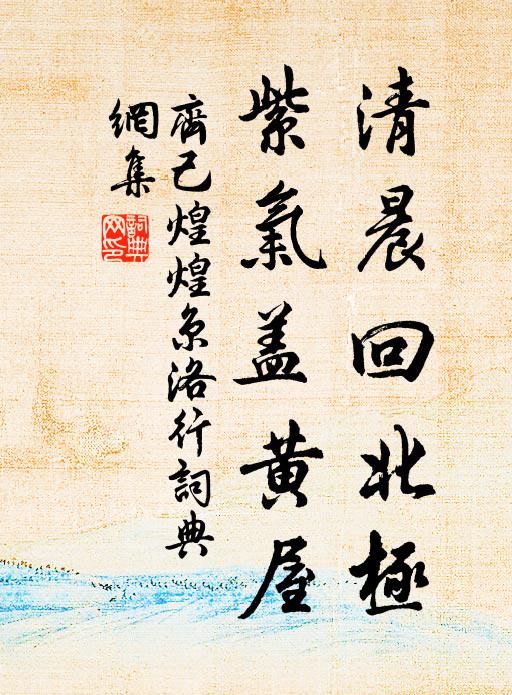 清晨回北極
紫氣盖黄屋
齊己煌煌京洛行詞典
網集
詞典
网印